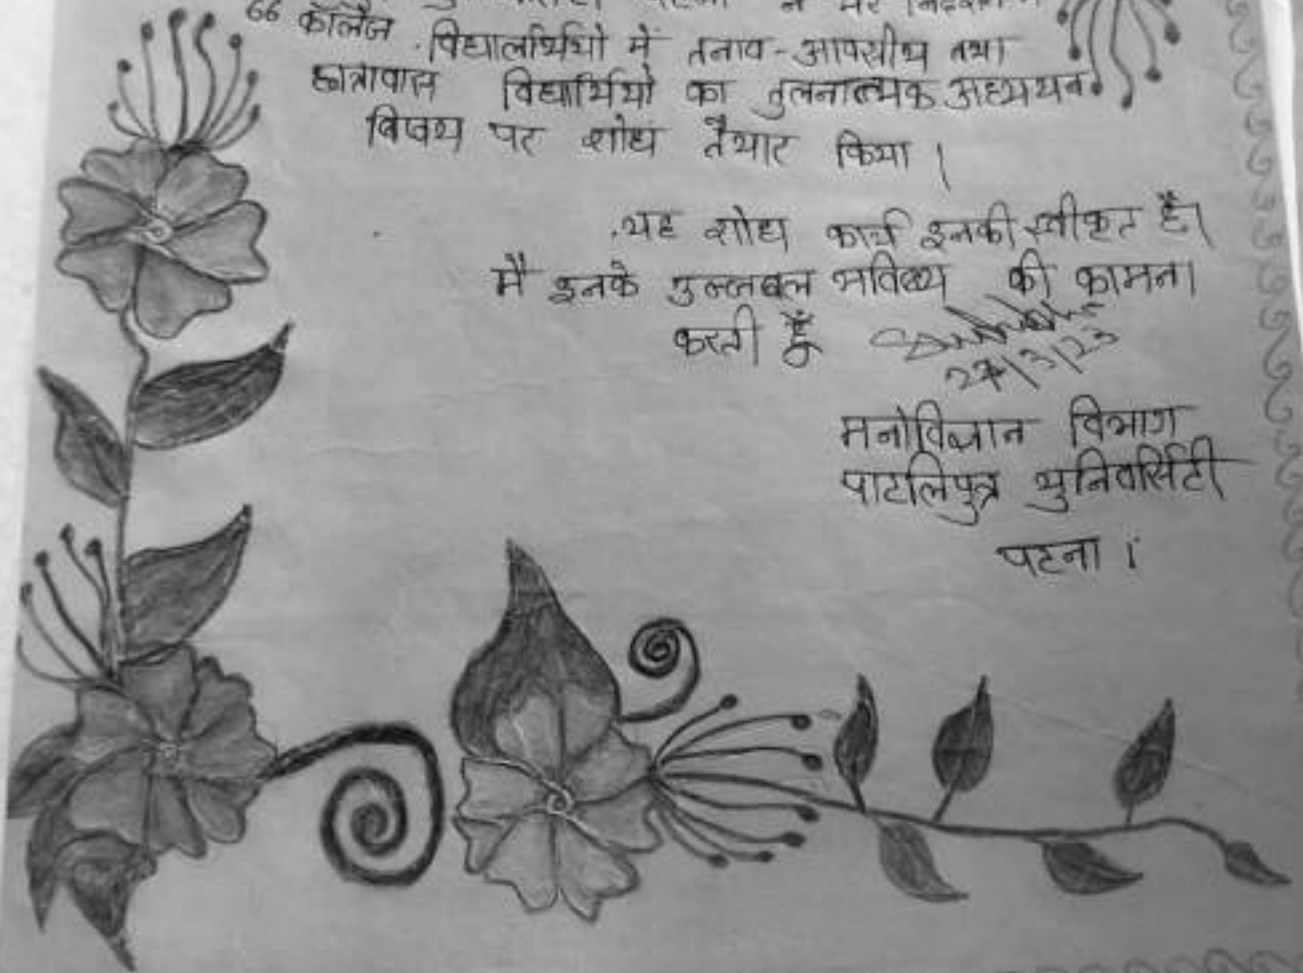 66 कॉलेज विद्यालर्थियो में तनाव-आवसीय तथा
छात्रावास विद्यार्थियो का तुलनात्मक अध्ययन
विषय पर शोध तैयार किया।
यह शोध कार्य इनकी स्वीकृट है।
मैं इनके उज्जवल भविष्य की कामना
करती हूँ
27/3/23
मनोविज्ञान विभाग
पाटलिपुत्र युनिवर्सिटी
पटना।